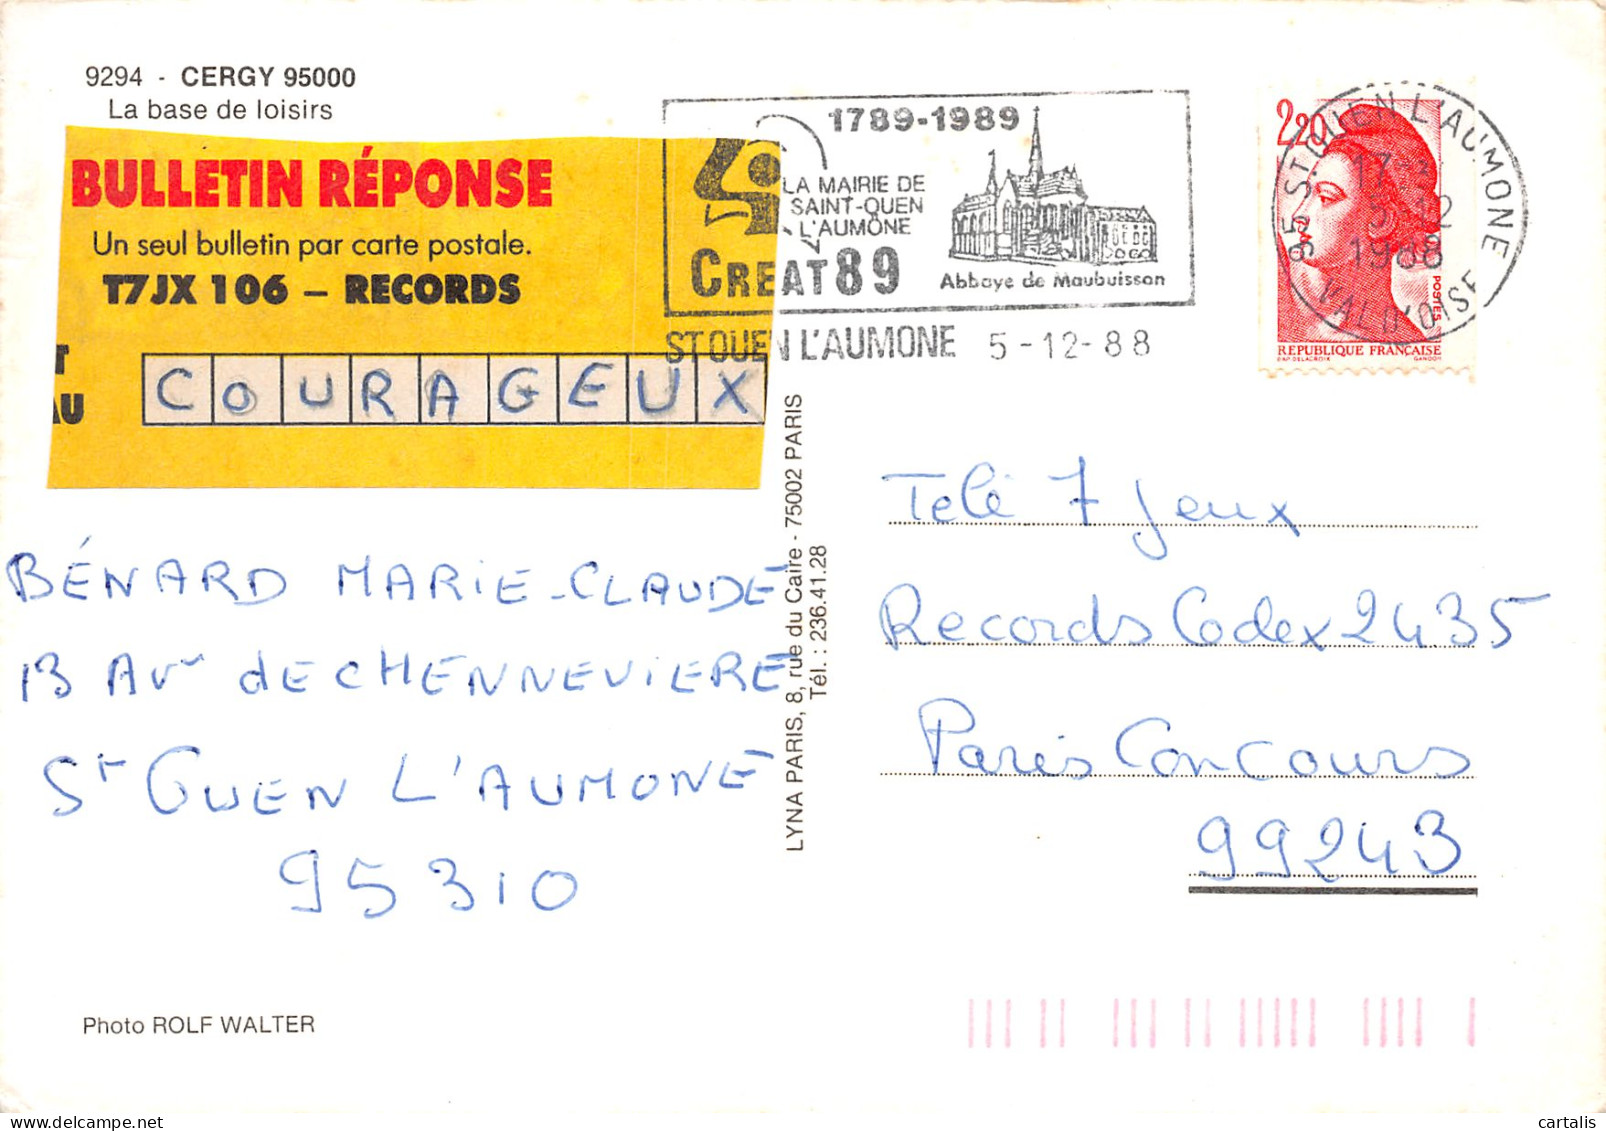 9294 - CERGY 95000
La base de loisirs
BULLETIN RÉPONSE
Un seul bulletin par carte postale.
T7JX 106 – RECORDS
T
AU
COURAGEUX
1789-1989
LA MAIRIE DE
SAINT-OUEN
L'AUMÔNE
CREAT89
Abbaye de Maubuisson
ST OUEN L'AUMONE 5-12-88
2,20
POSTES
RÉPUBLIQUE FRANÇAISE
DAP. DELACROIX GANDON
95 ST-OUEN L'AUMONE
5-12
1988
VAL D'OISE
BÉNARD MARIE-CLAUDE
13 Avr de CHENNEVIERE
St OUEN L'AUMONE
95310
LYNA PARIS, 8, rue du Caire - 75002 PARIS
Tél. : 236.41.28
Télé 7 Jeux
Records Codex 2435
Paris Concours
99243
Photo ROLF WALTER
cartalis